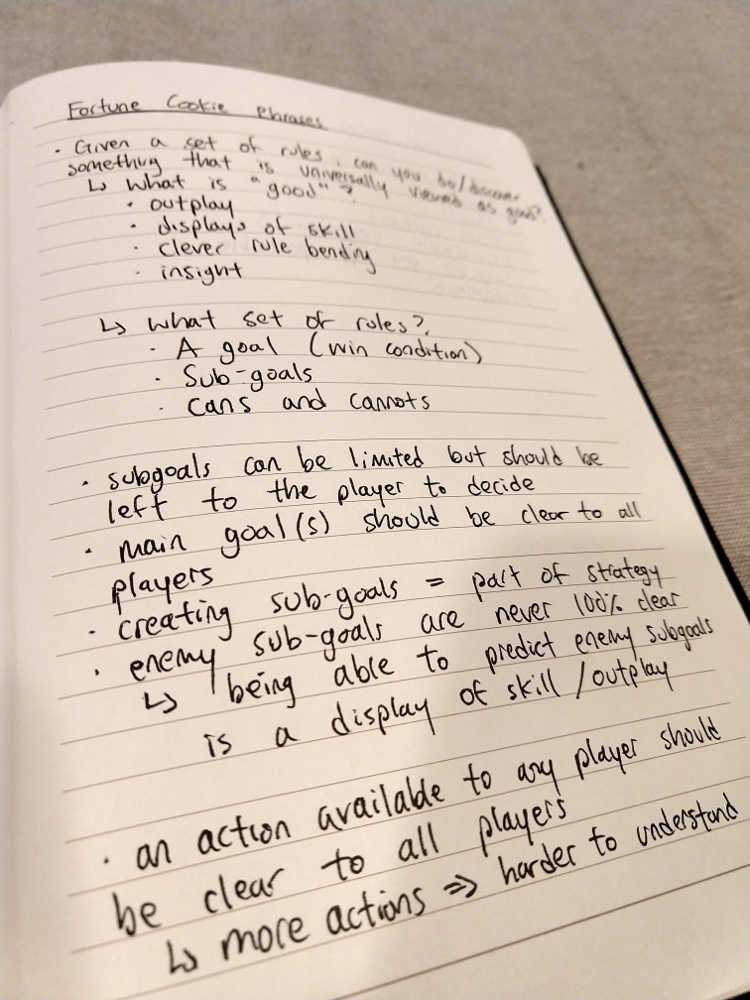 Fortune Cookie Phrases
· Given a set of rules, can you do/discover
something that is universally viewed as good?
↳ What is "good"?
· outplay
· displays of skill
· clever rule bending
· insight
↳ What set of rules?
· A goal (win condition)
· Sub-goals
· cans and cannots
· subgoals can be limited but should be
left to the player to decide
· main goal(s) should be clear to all
players
· creating sub-goals = part of strategy
· enemy sub-goals are never 100% clear
↳ being able to predict enemy subgoals
is a display of skill/outplay
· an action available to any player should
be clear to all players
↳ more actions => harder to understand